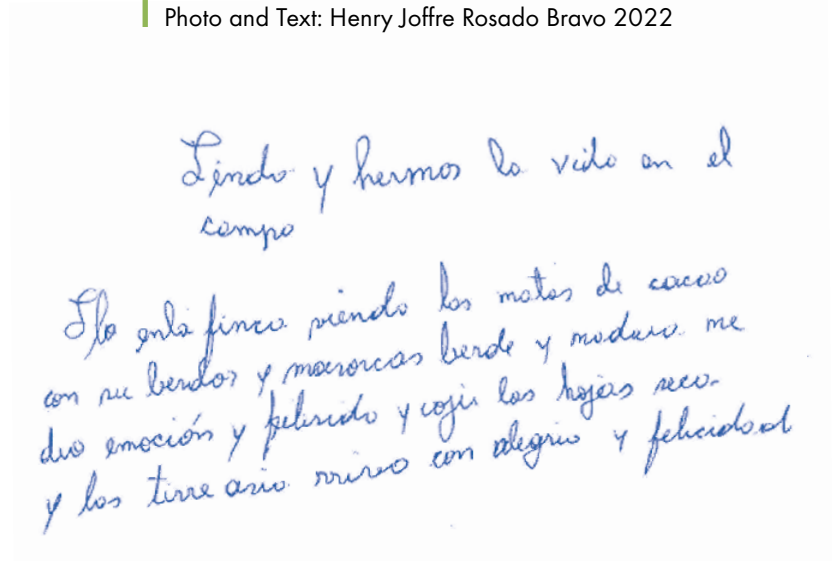 Photo and Text: Henry Joffre Rosado Bravo 2022
Lindo y hermos la vida en el
campo
finca viendo las matas de cacao
con su berdor y masorcas berde y maduro me
dio emoción y y cogia las hojas seca
y las tire asia con alegria y felicidad